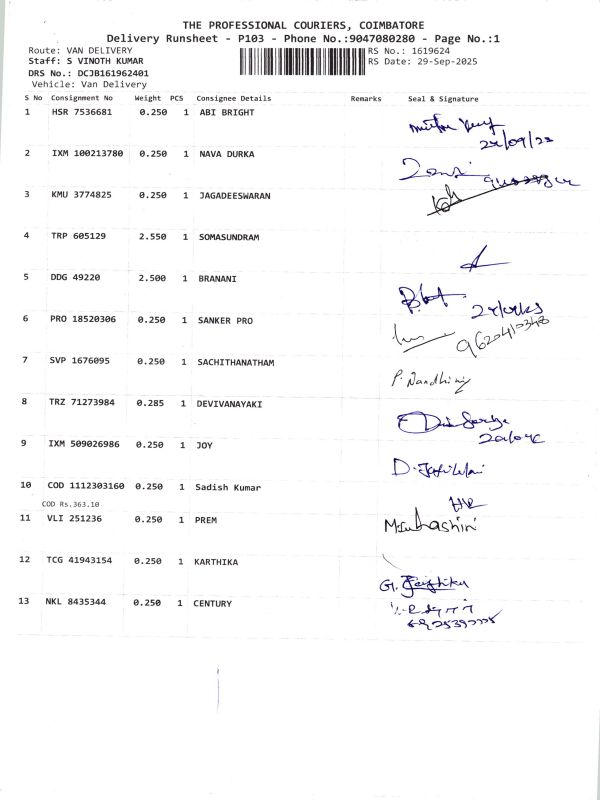 THE PROFESSIONAL COURIERS, COIMBATORE
Delivery Runsheet - P103 - Phone No.:9047080280 - Page No.:1
Route: VAN DELIVERY
RS No.: 1619624
Staff: S VINOTH KUMAR
RS Date: 29-Sep-2025
DRS No.: DCJB161962401
Vehicle: Van Delivery
S No Consignment No Weight PCS Consignee Details Remarks Seal & Signature
1 HSR 7536681 0.250 1 ABI BRIGHT
2 IXM 100213780 0.250 1 NAVA DURKA
3 KMU 3774825 0.250 1 JAGADEESWARAN
4 TRP 605129 2.550 1 SOMASUNDRAM
5 DDG 49220 2.500 1 BRANANI
6 PRO 18520306 0.250 1 SANKER PRO
9620410348
7 SVP 1676095 0.250 1 SACHITHANATHAM
P. Nandhiny
8 TRZ 71273984 0.285 1 DEVIVANAYAKI
9 IXM 509026986 0.250 1 JOY
10 COD 1112303160 0.250 1 Sadish Kumar
COD Rs.363.10
11 VLI 251236 0.250 1 PREM
12 TCG 41943154 0.250 1 KARTHIKA
13 NKL 8435344 0.250 1 CENTURY